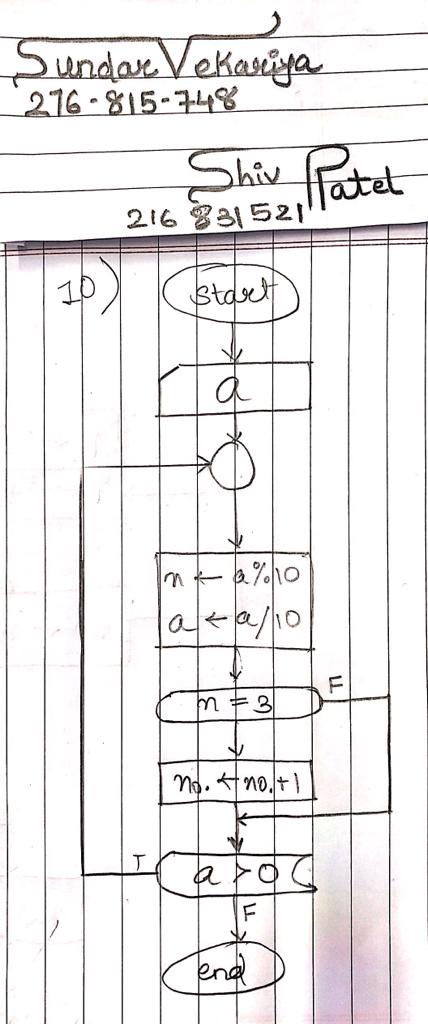 Sundar Vekariya
276-815-748
Shiv Patel
216 831521
10)
start
a
n ← a%10
a ← a/10
n = 3
F
no. ← no.+1
T
a > 0
F
end